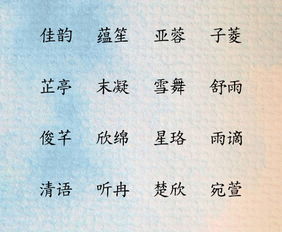 佳韵 蕴笙 亚蓉 子菱
芷亭 末凝 雪舞 舒雨
俊芊 欣绵 星珞 雨谪
清语 听冉 楚欣 宛萱